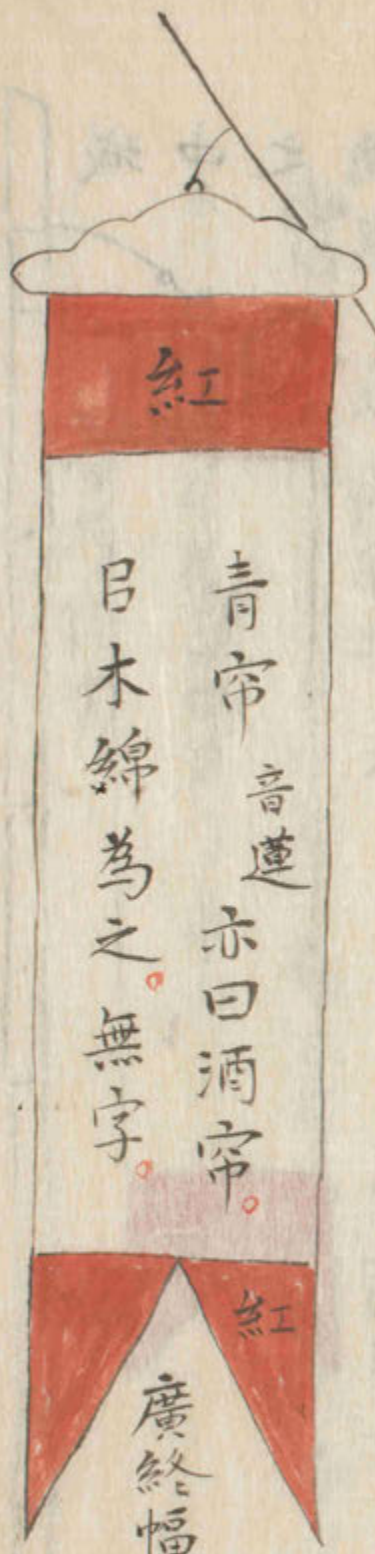 紅
青帘 音蓮 亦曰酒帘。
㠯木綿為之。無字。
紅
廣終幅